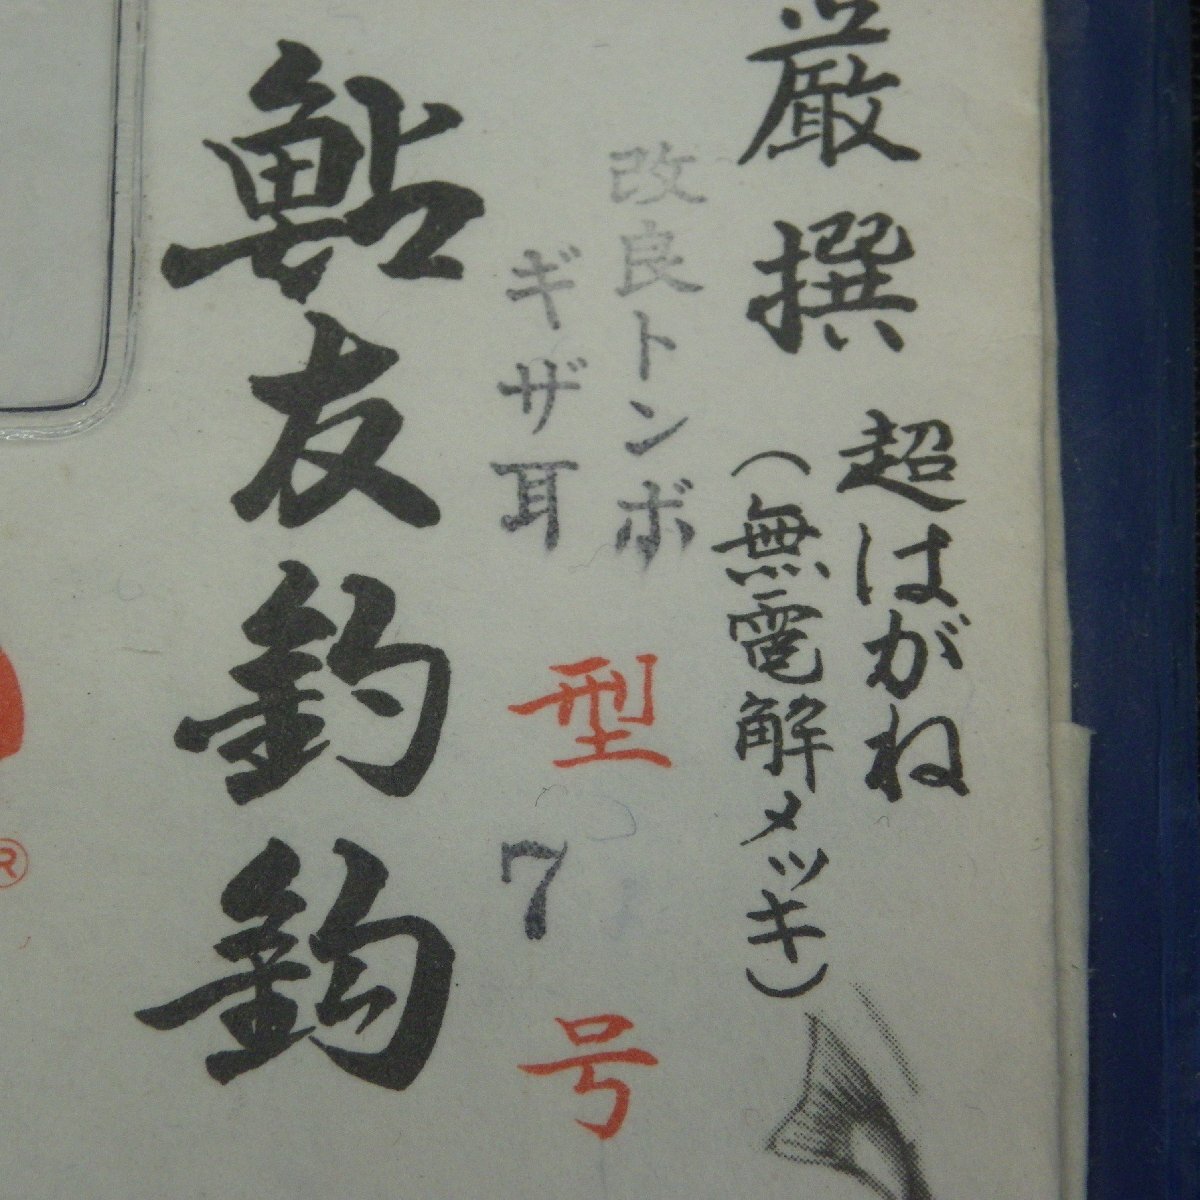 厳撰
超はがね
(無電解メッキ)
改良トンボ
ギザ耳
型
7
号
鮎友釣鈎
®